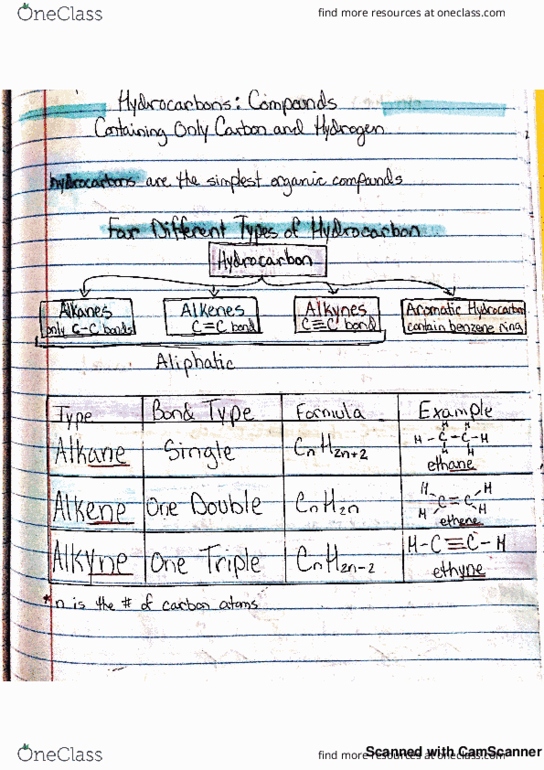 OneClass
find more resources at oneclass.com
Hydrocarbons: Compounds
Containing Only Carbon and Hydrogen
hydrocarbons are the simplest organic compounds
Four Different Types of Hydrocarbon
Hydrocarbon
Alkanes
only C-C bonds
Alkenes
C=C bond
Alkynes
C≡C bond
Aromatic Hydrocarbon
contain benzene ring
Aliphatic
Type Bond Type Formula Example
Alkane Single CnH2n+2
H H
H-C-C-H
H H
ethane
Alkene One Double CnH2n
H H
C=C
H H
ethene
Alkyne One Triple CnH2n-2 H-C≡C-H
ethyne
*n is the # of carbon atoms
OneClass
find more resources at oneclass.com
Scanned with CamScanner